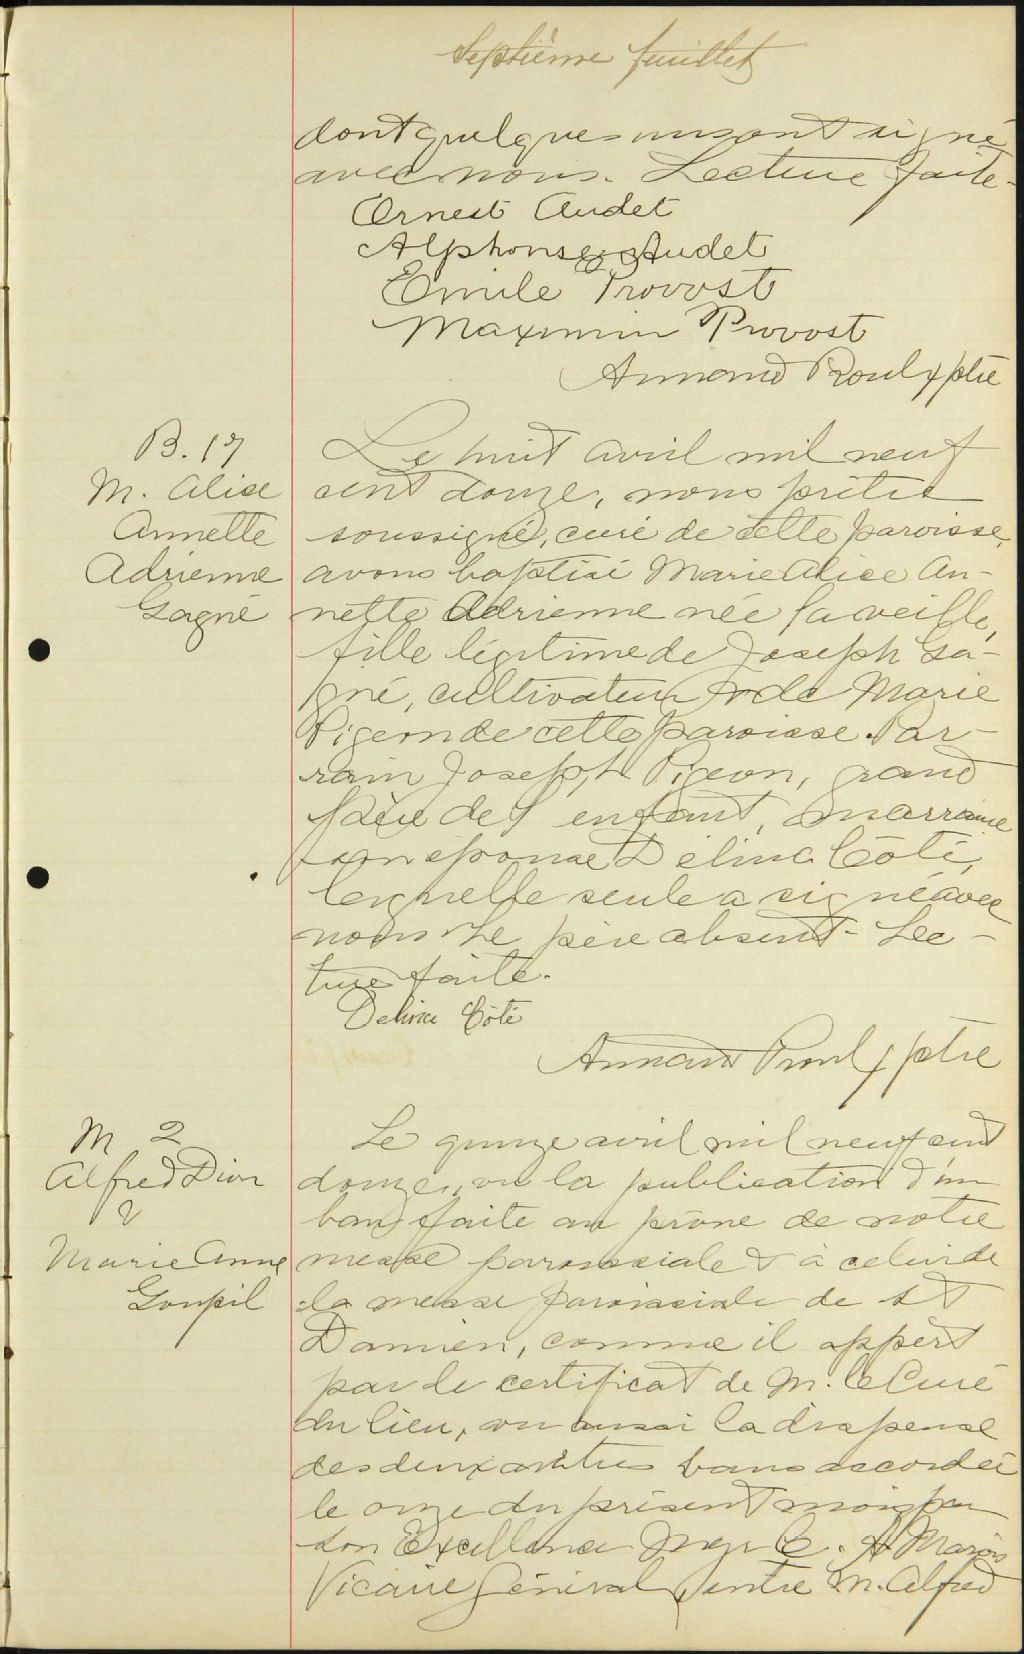 Septième feuillet
dont quelques uns ont signé
avec nous. Lecture faite.
Ernest Audet
Alphonse Audet
Emile Provost
Maximin Provost
Armand Proulx ptre
B. 17
M. Alice
Annette
Adrienne
Gagné
Le huit avril mil neuf
cent douze, nous prêtre
soussigné, curé de cette paroisse,
avons baptisé Marie Alice An-
nette Adrienne née la veille,
fille légitime de Joseph Ga-
gné, cultivateur & de Marie
Pigeon de cette paroisse. Par-
rain Joseph Pigeon, grand
père de l'enfant, marraine
son épouse Délina Côté,
laquelle seule a signé avec
nous le père absent - Lec-
ture faite.
Délina Côté
Armand Proulx ptre
M 2
Alfred Dion
&
Marie Anne
Goupil
Le quinze avril mil neuf cent
douze, vu la publication d'un
ban faite au prône de notre
messe paroissiale & à celui de
la messe paroissiale de St
Damien, comme il appert
par le certificat de M. le Curé
du lieu, vu aussi la dispense
des deux autres bans accordée
le onze du présent mois par
son Excellence Mgr C. A Marois
Vicaire Général, entre M. Alfred